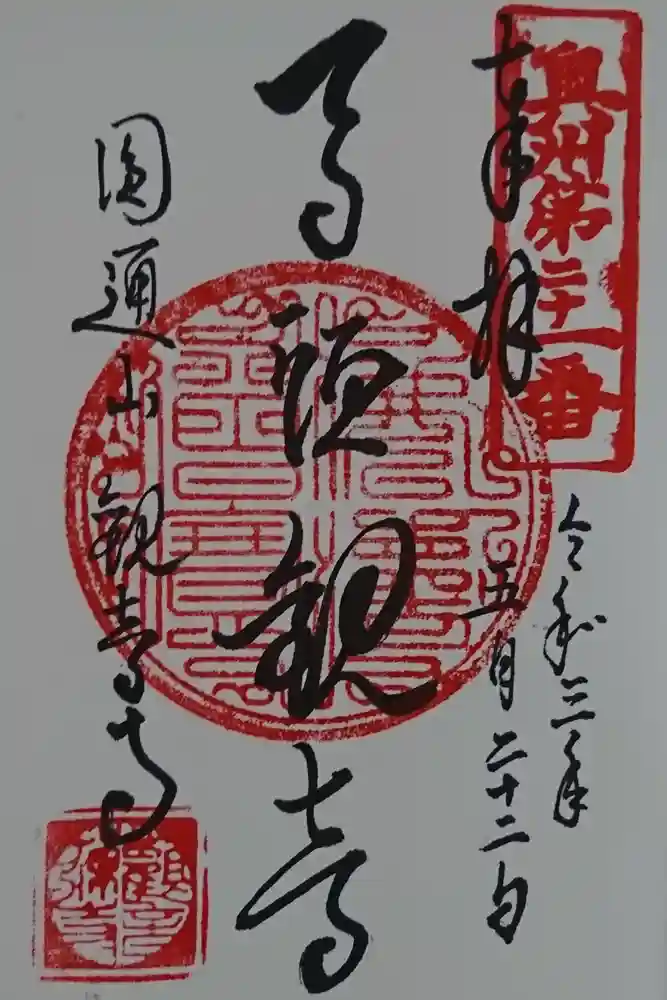 奥州第二十一番
奉拝
令和三年
五月二十二日
馬頭観音
圓通山観音寺